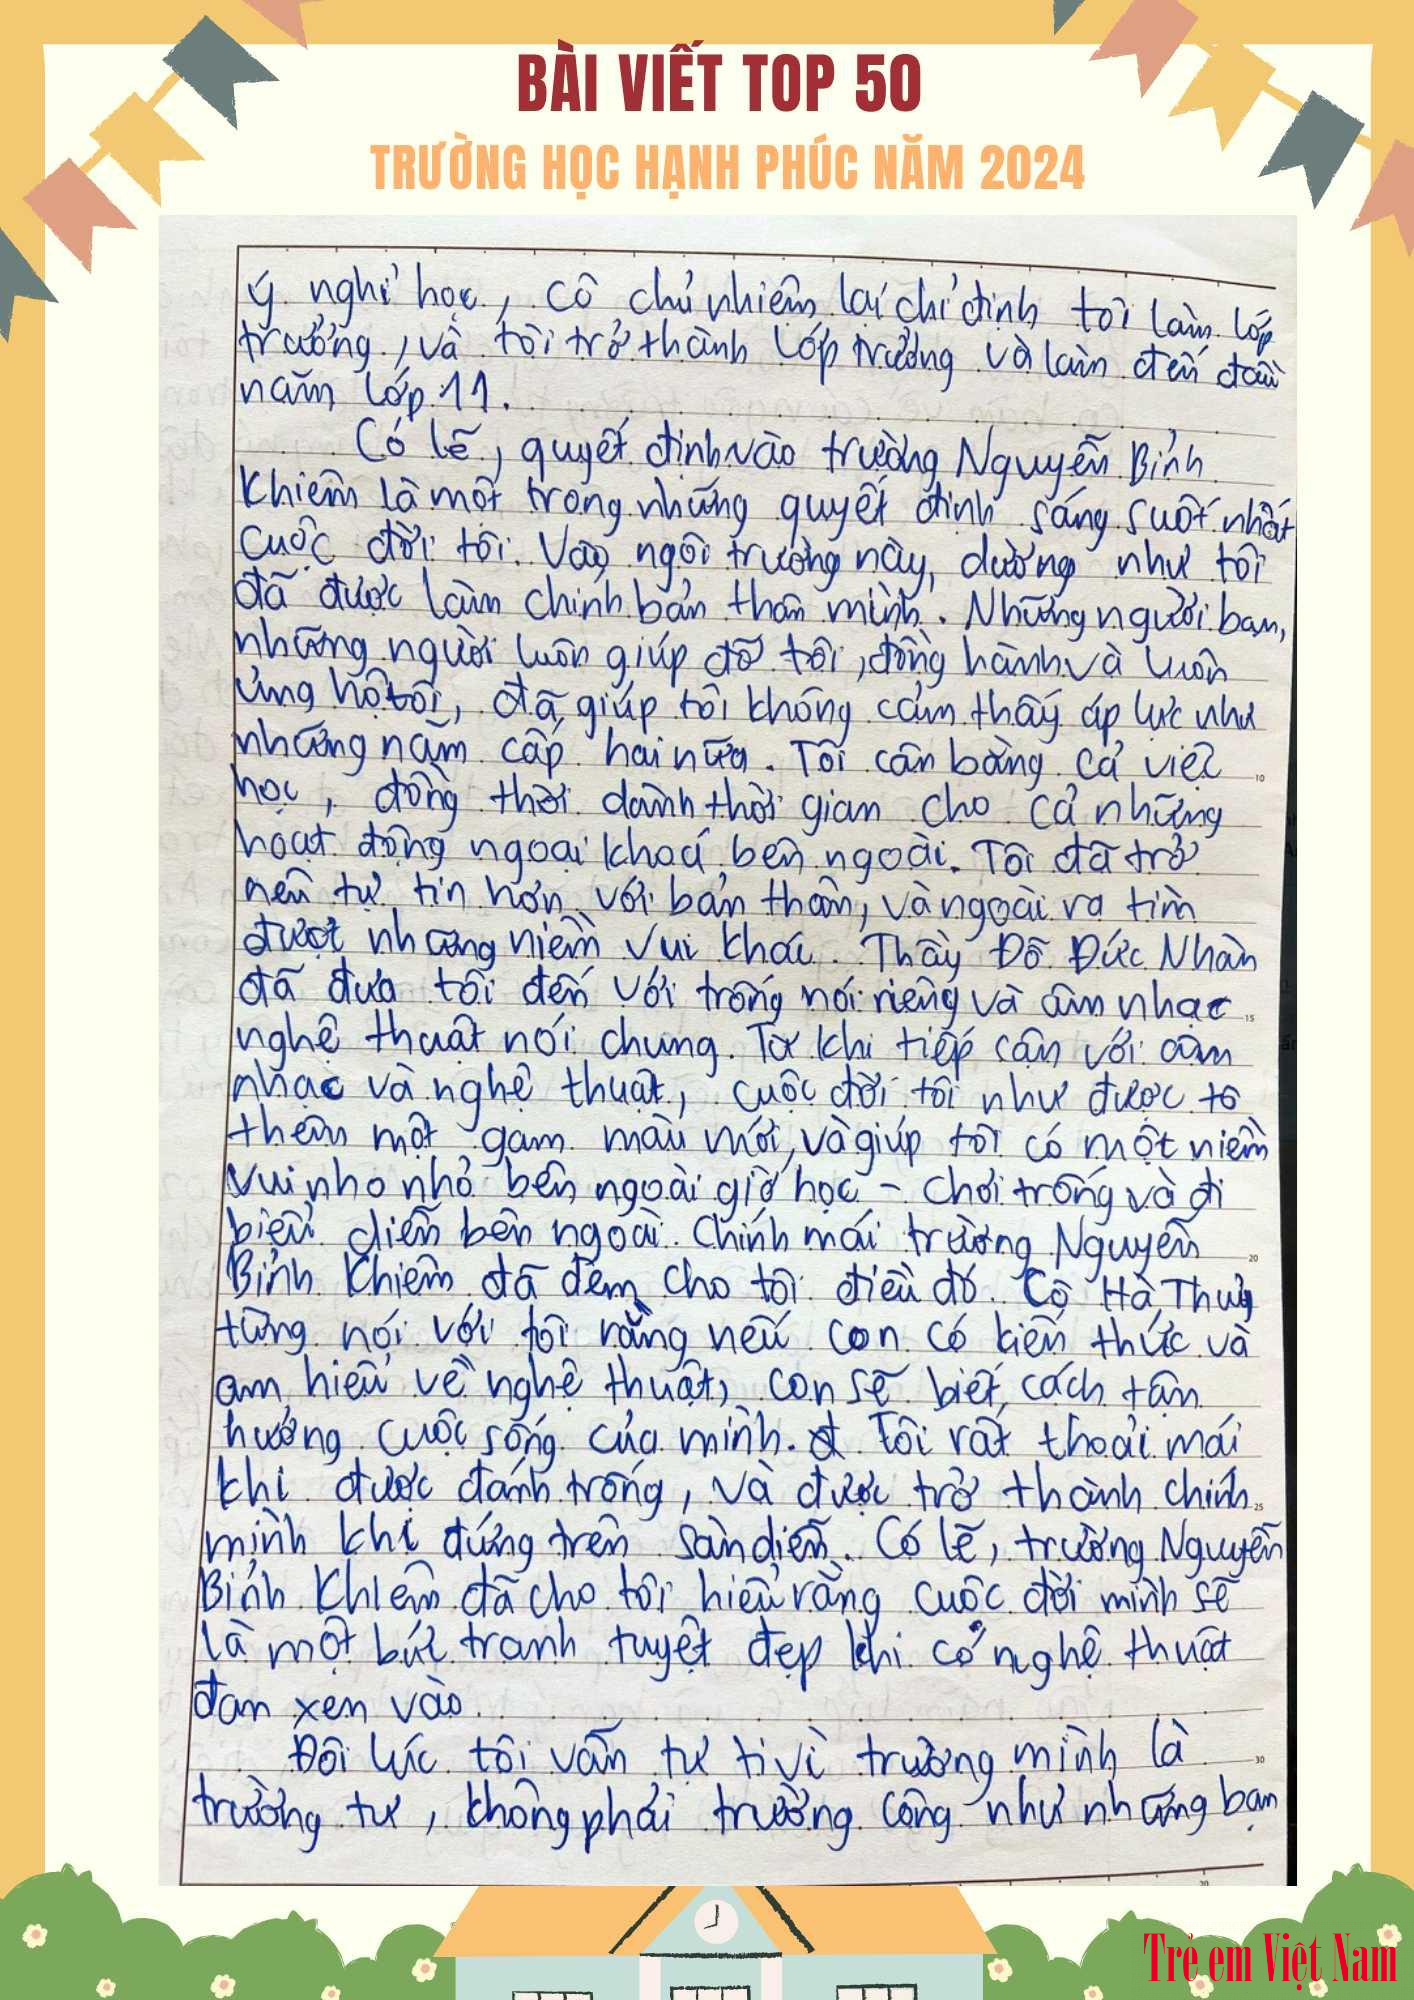 BÀI VIẾT TOP 50
TRƯỜNG HỌC HẠNH PHÚC NĂM 2024
ý nghỉ học, cô chủ nhiệm lại chỉ định tôi làm lớp
trưởng, và tôi trở thành lớp trưởng và làm đến đầu
năm lớp 11.
Có lẽ, quyết định vào trường Nguyễn Bỉnh
Khiêm là một trong những quyết định sáng suốt nhất
cuộc đời tôi. Vào ngôi trường này, dường như tôi
đã được làm chính bản thân mình. Những người bạn,
những người luôn giúp đỡ tôi, đồng hành và luôn
ủng hộ tôi, đã giúp tôi không cảm thấy áp lực như
những năm cấp hai nữa. Tôi cân bằng cả việc
10
học, đồng thời dành thời gian cho cả những
hoạt động ngoại khoá bên ngoài. Tôi đã trở
nên tự tin hơn với bản thân, và ngoài ra tìm
được những niềm vui khác. Thầy Đỗ Đức Nhàn
đã đưa tôi đến với trống nói riêng và âm nhạc
15
nghệ thuật nói chung. Từ khi tiếp cận với âm
nhạc và nghệ thuật, cuộc đời tôi như được tô
thêm một gam màu mới, và giúp tôi có một niềm
vui nho nhỏ bên ngoài giờ học - chơi trống và đi
biểu diễn bên ngoài. Chính mái trường Nguyễn
20
Bỉnh Khiêm đã đem cho tôi điều đó. Cô Hà Thuỷ
từng nói với tôi rằng nếu con có kiến thức và
am hiểu về nghệ thuật, con sẽ biết cách tận
hưởng cuộc sống của mình. Tôi rất thoải mái
khi được đánh trống, và được trở thành chính
25
mình khi đứng trên sàn diễn. Có lẽ, trường Nguyễn
Bỉnh Khiêm đã cho tôi hiểu rằng cuộc đời mình sẽ
là một bức tranh tuyệt đẹp khi có nghệ thuật
đan xen vào.
Đôi lúc tôi vẫn tự ti vì trường mình là
30
trường tư, không phải trường công như những bạn
Trẻ em Việt Nam